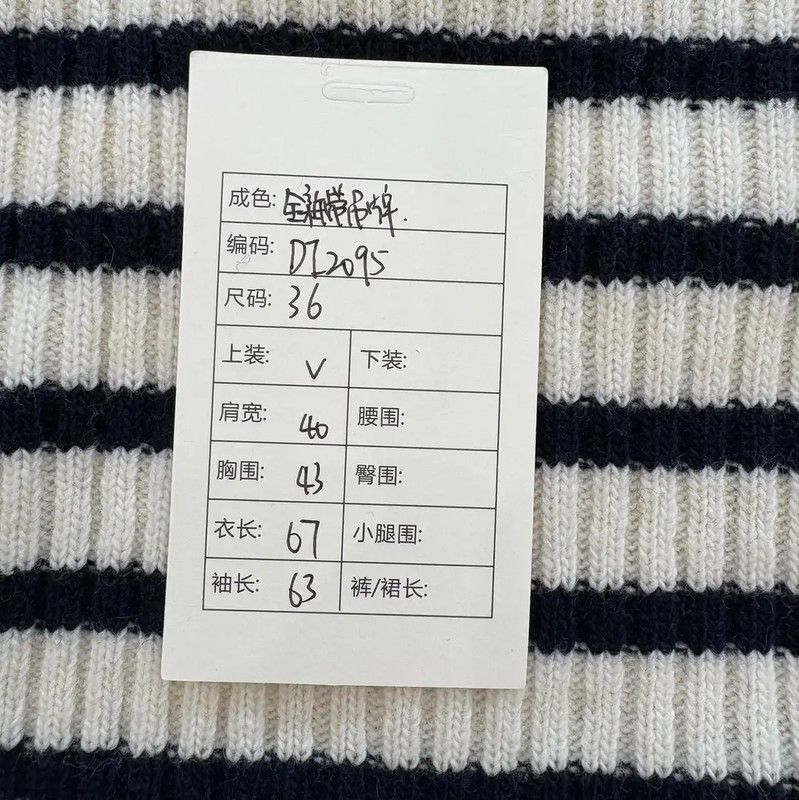 成色: 全新带吊牌.
编码: DI2095
尺码: 36
上装: √ 下装:
肩宽: 40 腰围:
胸围: 43 臀围:
衣长: 67 小腿围:
袖长: 63 裤/裙长: